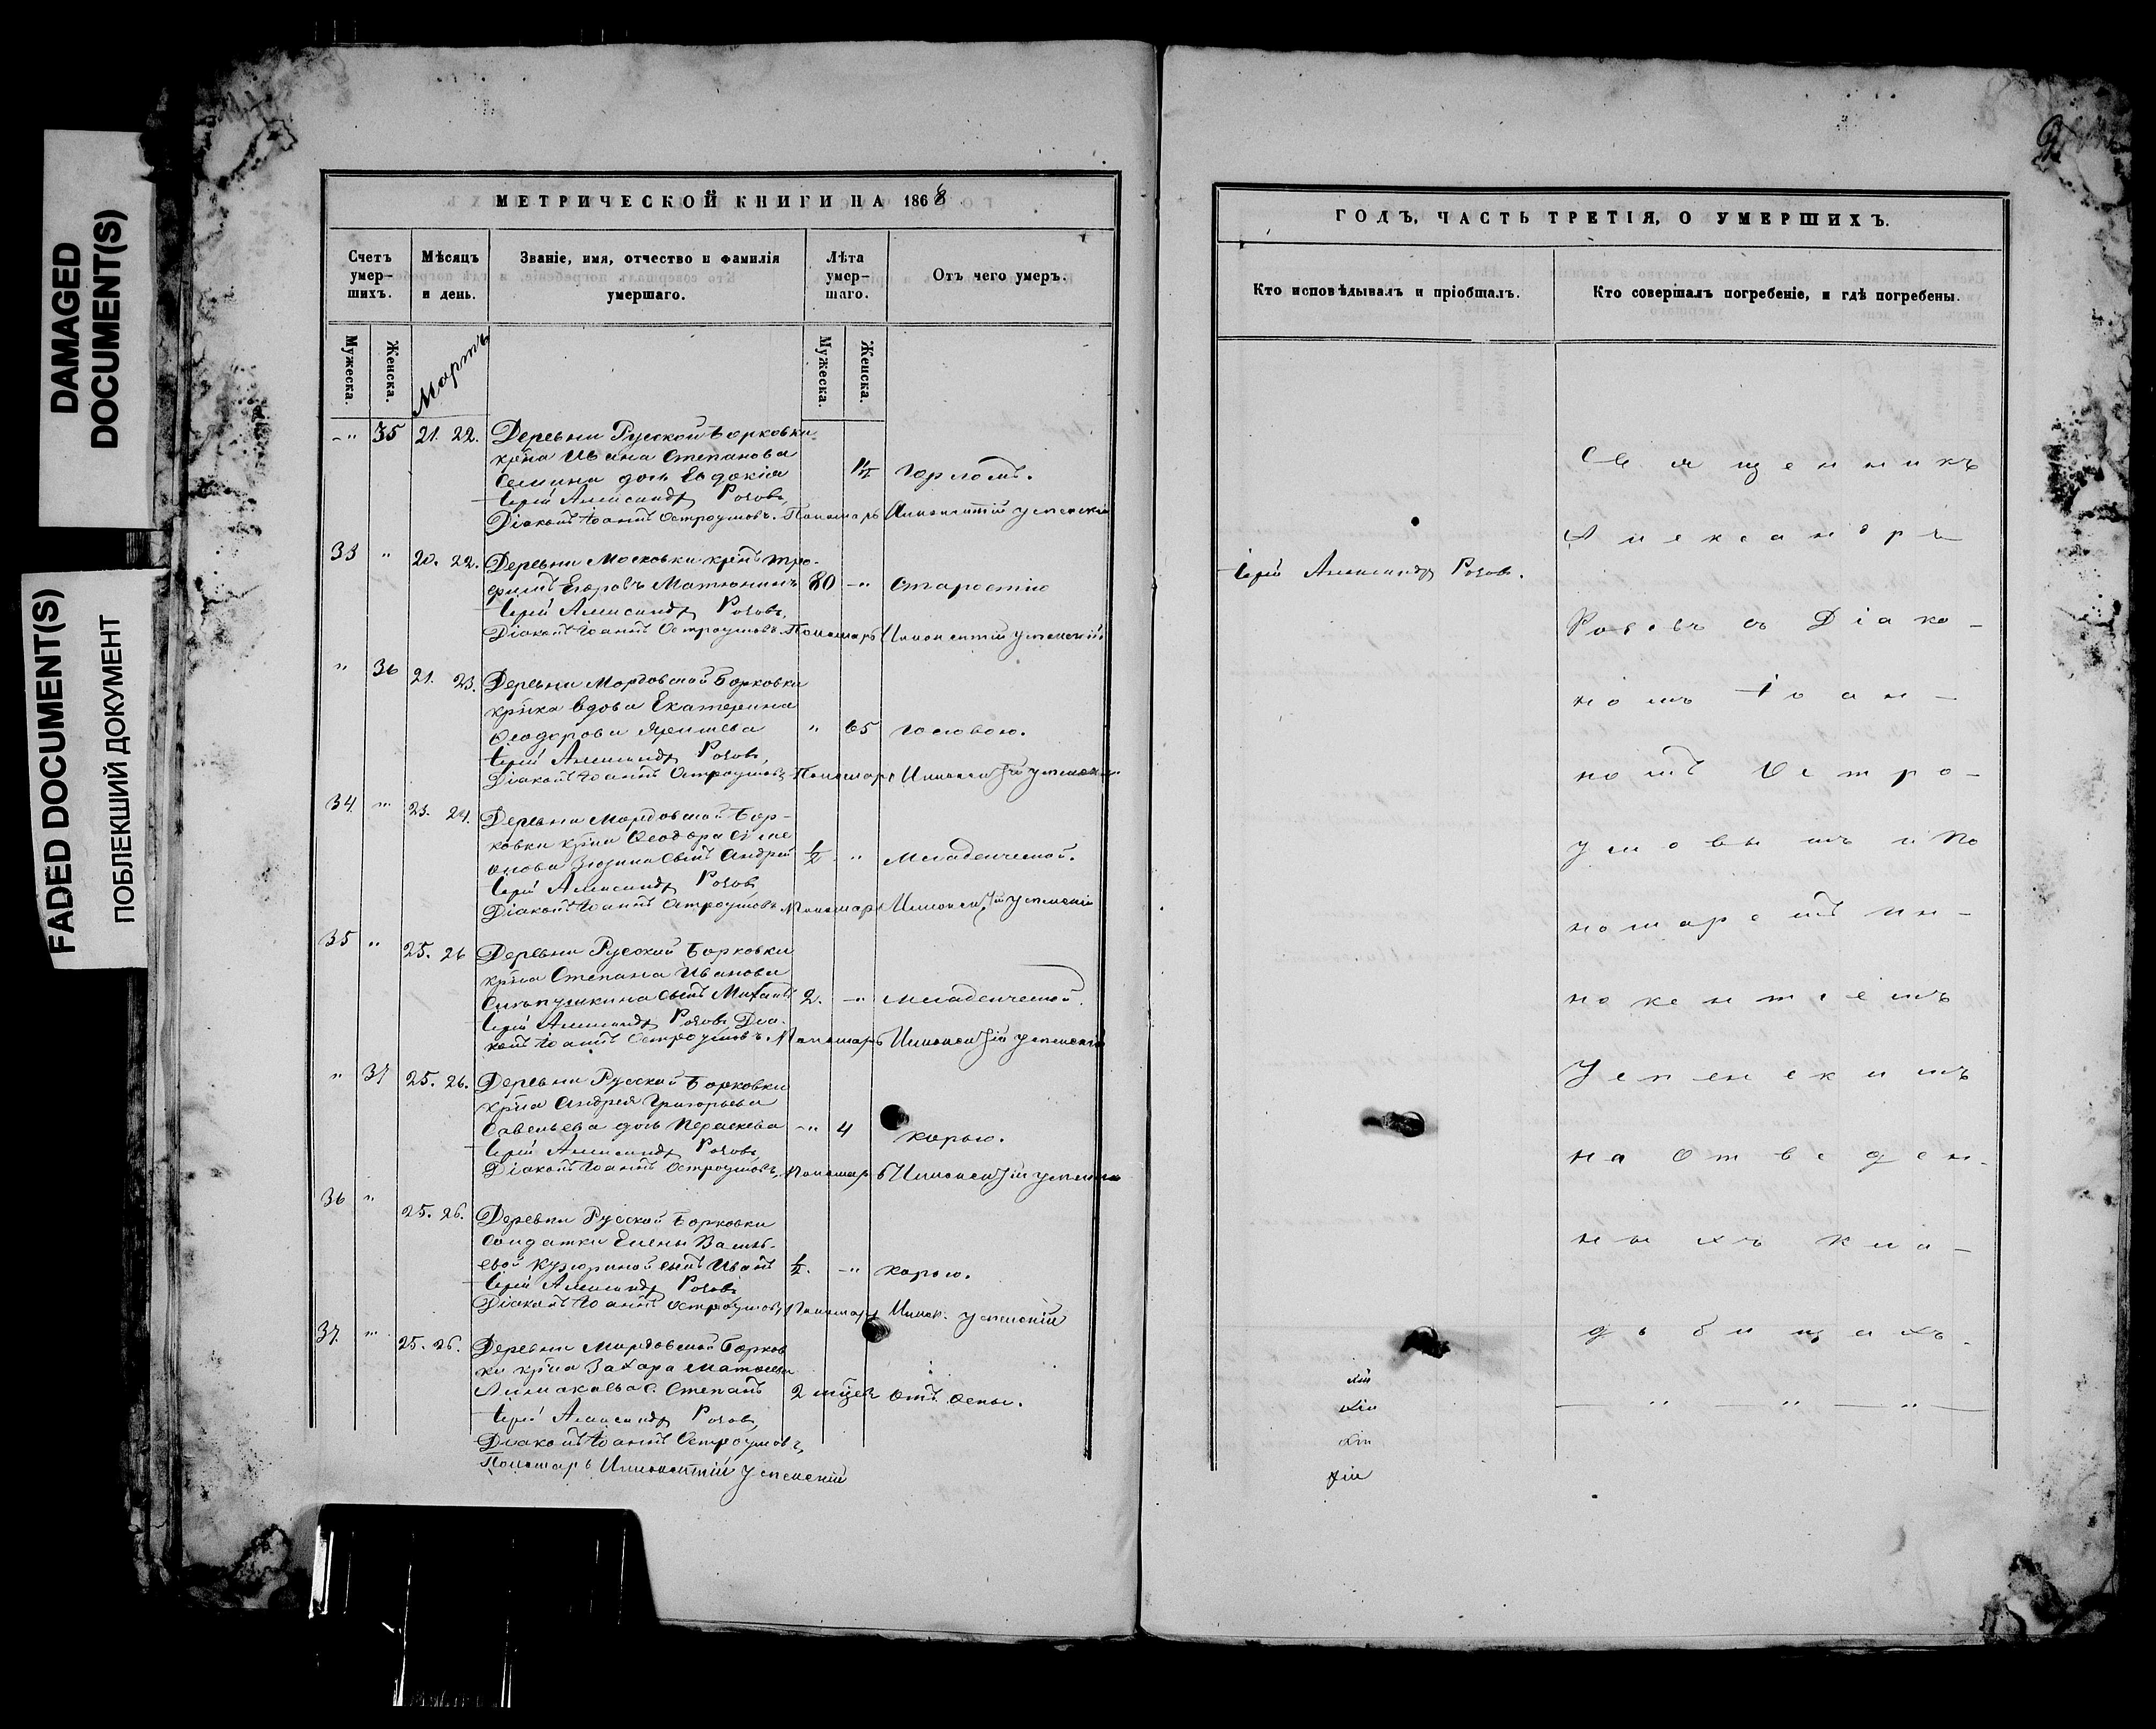 DAMAGED
DOCUMENT(S)
FADED DOCUMENT(S)
ПОБЛЕКШИЙ ДОКУМЕНТ
МЕТРИЧЕСКОЙ КНИГИ НА 1868
Счетъ умер-шихъ.
Мѣсяцъ и день.
Званіе, имя, отчество и фамилія умершаго.
Лѣта умер-шаго.
Отъ чего умеръ.
Мужеска. Женска. Мартъ Мужеска. Женска.
„ 35 21. 22. Деревни Русской Борковки
кр̃на Ивана Степанова
Семина дочь Евдокія 1½ горломъ.
Іерей Александръ Роговъ,
Діаконъ Іоаннъ Остроумовъ. Пономарь Иннокентій Успенскій
33 „ 20. 22. Деревни Московки кр̃нъ Тро-
фимъ Егоровъ Матюнинъ 80 „ Старостію
Іерей Александръ Роговъ,
Діаконъ Іоаннъ Остроумовъ. Пономарь Иннокентій Успенскій
„ 36 21. 23. Деревни Мордовской Борковки
кр̃нка вдова Екатерина
Ѳеодорова „ 65 головою.
Іерей Александръ Роговъ,
Діаконъ Іоаннъ Остроумовъ Пономарь Иннокентій Успенскій
34. „ 23. 24. Деревни Мордовской Бор-
ковки кр̃на Ѳеодора Симе
онова Зюзина сынъ Андрей ½ „ Младенческой.
Іерей Александръ Роговъ
Діаконъ Іоаннъ Остроумовъ Пономарь Иннокентій Успенскій
35 „ 25. 26 Деревни Русской Борковки
кр̃на Степана Иванова
сынъ Михаилъ 2. „ младенческой.
Іерей Александръ Роговъ Діа-
конъ Іоаннъ Остроумовъ. Пономарь Иннокентій Успенскій
„ 37 25. 26. Деревни Русской Борковки
кр̃на Андрея Григорьева
Савельева дочь Параскева „ 4 корью.
Іерей Александръ Роговъ,
Діаконъ Іоаннъ Остроумовъ, Пономарь Иннокентій Успенскій
36 „ 25. 26. Деревни Русской Борковки
Солдатки Елены Василь-
евой Кузюриной сынъ Иванъ ½. „ корью.
Іерей Александръ Роговъ
Діаконъ Іоаннъ Остроумовъ, Пономарь Иннок. Успенскій
37. „ 25. 26. Деревни Мордовской Борков
ки кр̃на Захара Матвѣева
с. Степанъ 2 мѣсяц. отъ оспы.
Іерей Александръ Роговъ,
Діаконъ Іоаннъ Остроумовъ,
Пономарь Иннокентій Успенскій
ГОДЪ, ЧАСТЬ ТРЕТІЯ, О УМЕРШИХЪ.
Кто исповѣдывалъ и пріобщалъ.
Кто совершалъ погребеніе, и гдѣ погребены.
Іерей Александръ Роговъ.
Священникъ
Александръ
Роговъ съ Діако-
номъ Іоан-
номъ Остро-
умовымъ и По
номаремъ Ин-
нокентіемъ
Успенскимъ
на отведен-
ныхъ кла-
дбищахъ.